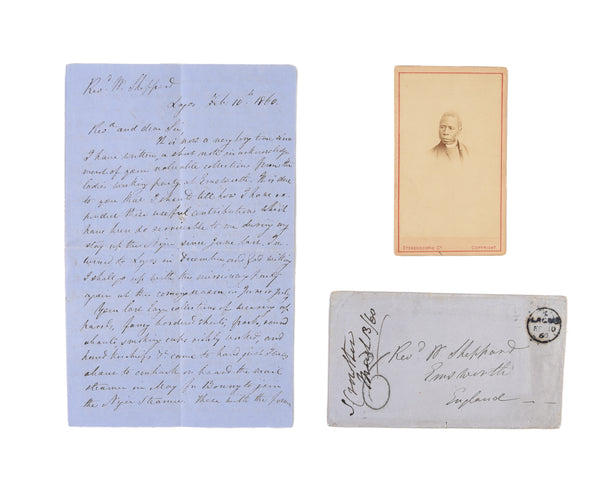 Revd. W. Sheppard
Lagos Feb. 10th 1860.
Revd and dear Sir,
It is not a very long time since
I have written a short note in acknowledg
ment of your valuable collections from the
ladies working party at Emsworth. It is due
to you that I should tell how I have ex
pended these useful contributions which
have been so serviceable to me during my
stay up the Niger since June last. I re
turned to Lagos in December and God willing
I shall go up with the missionary party
again at the coming season in June or July.
Upon Care large collection of
fancy bordered shirts, frocks, round
shawls, smoking caps nicely worked, and
hand kerchiefs &c came to hand just
chance to embark on board the mail
steamer on May for Bonny to join
the Niger Steamer. These with the
STEREOSCOPIC CO. COPYRIGHT.
S. Crowther
Mar 13/60
LAGOS
10
60
Revd. W Sheppard
Emsworth
England